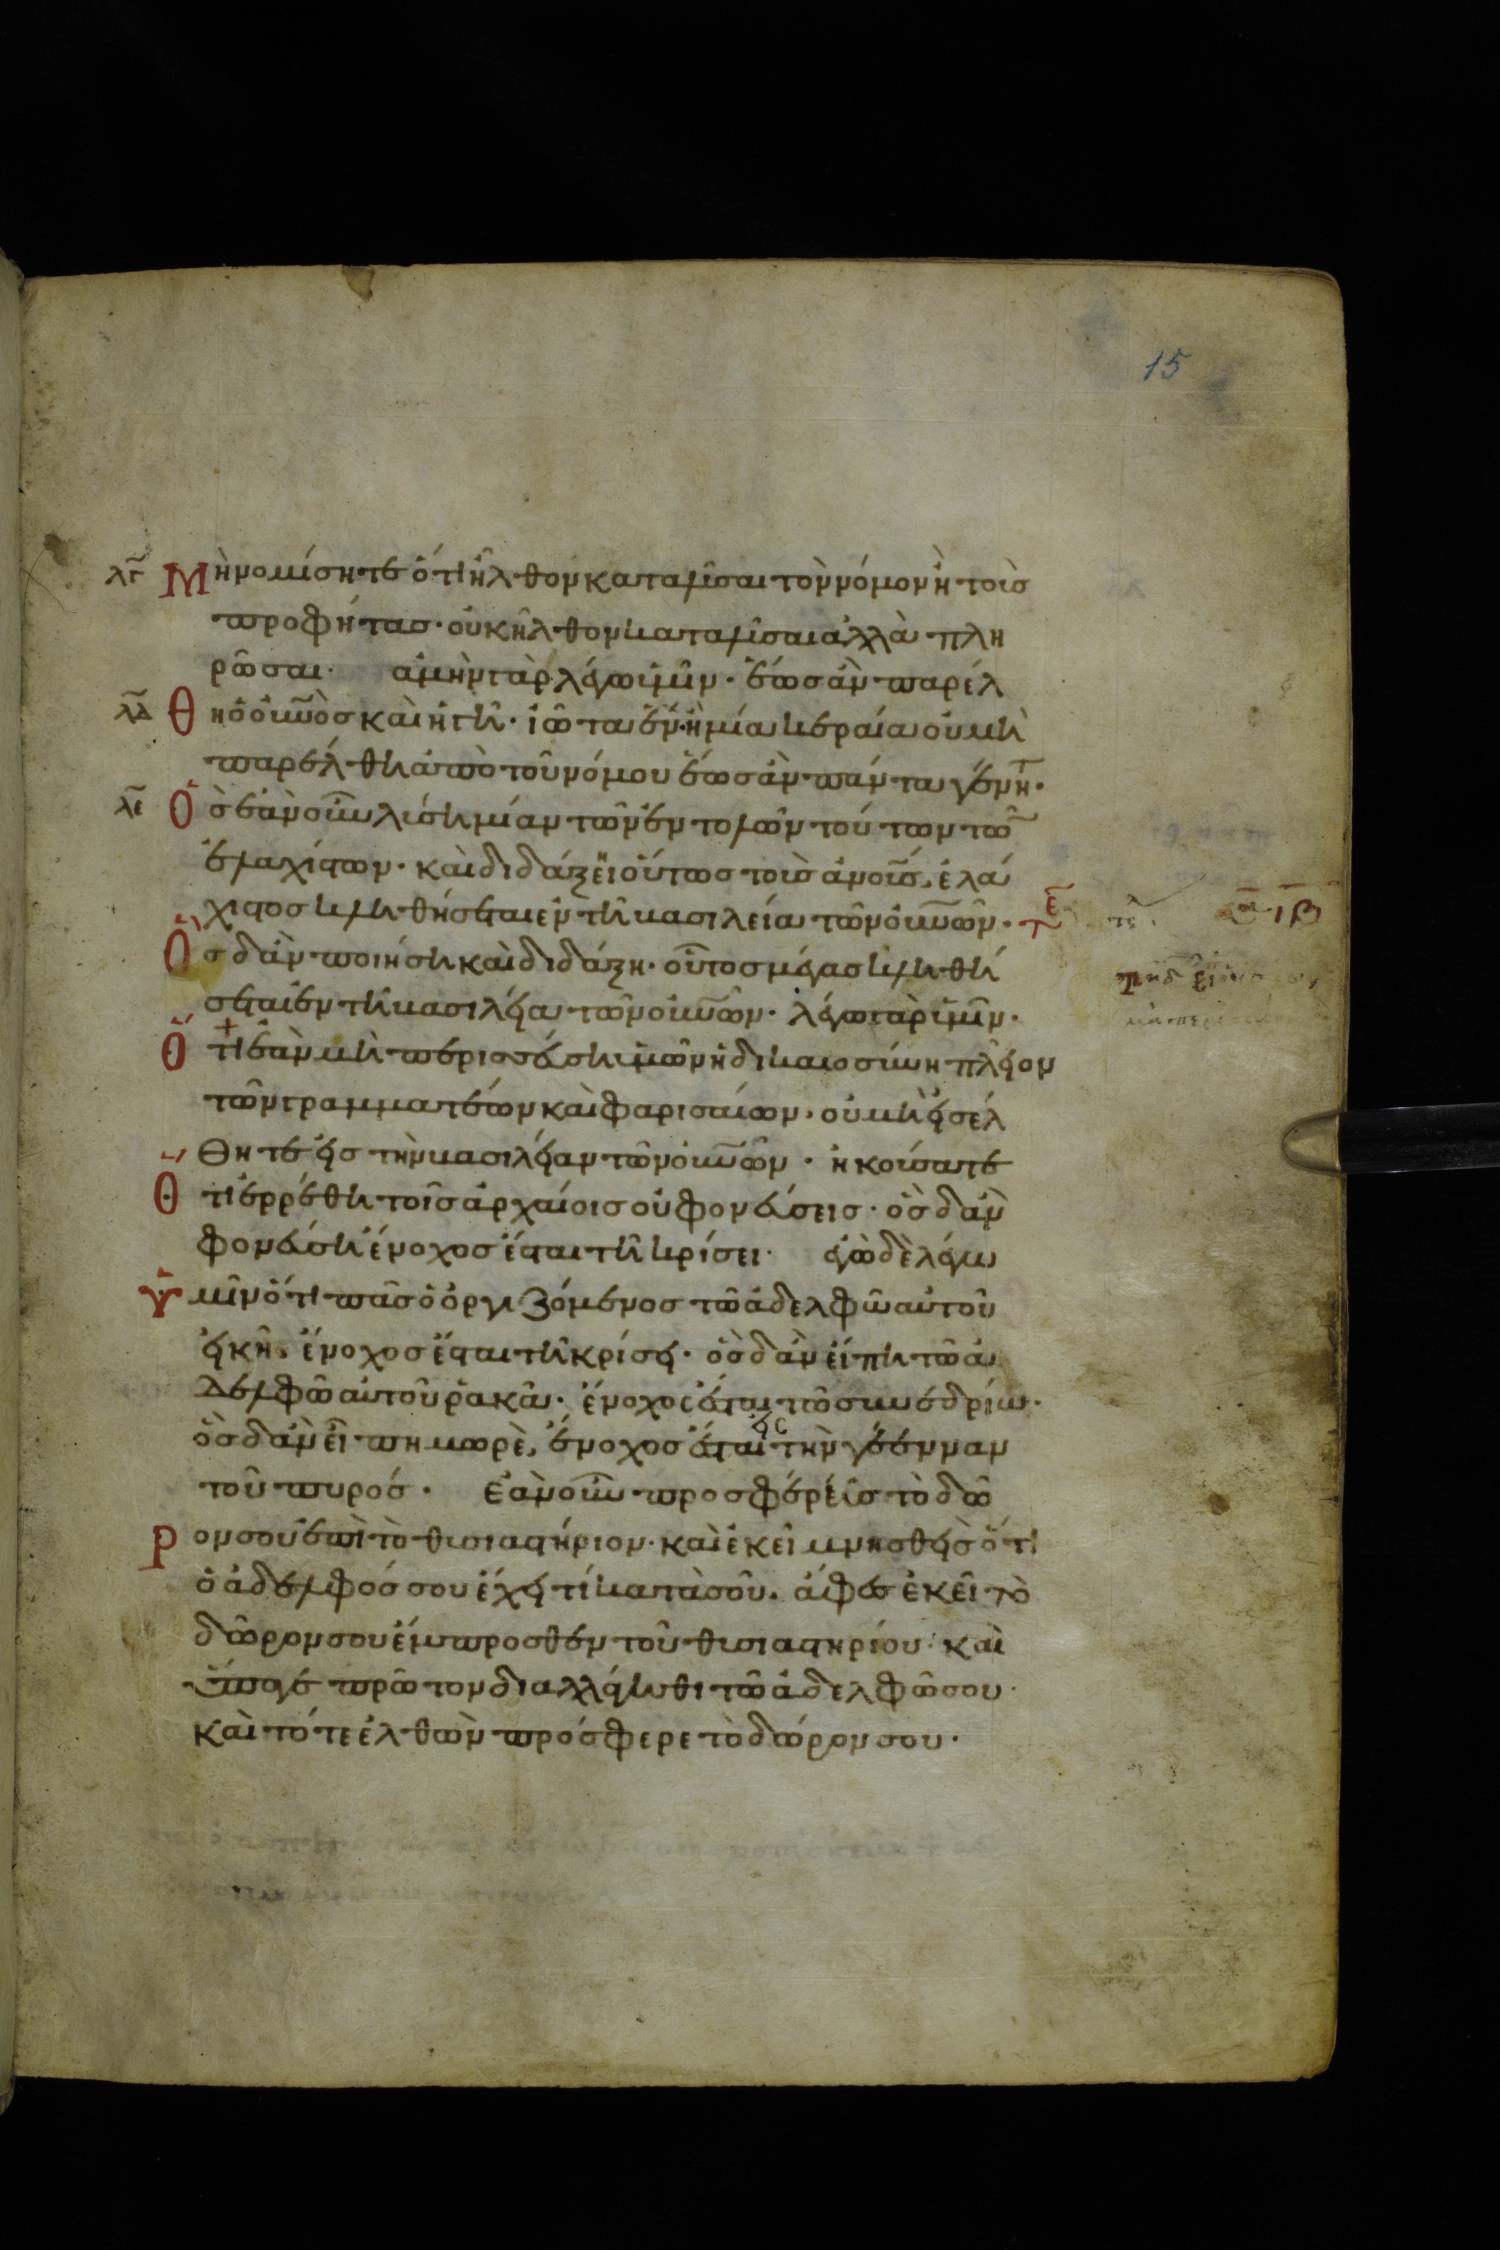 15
λγ Μὴ νομίσητε ὅτι ἦλθον καταλῦσαι τὸν νόμον ἢ τοὺσ
προφήτασ· οὐκ ἦλθον καταλῦσαι ἀλλὰ πλη
ρῶσαι· ἀμὴν γὰρ λέγω ὑμῖν· ἕωσ ἂν παρέλ
λδ θη ὁ οὐνοσ καὶ ἡ γῆ· ἰῶτα ἓν ἢ μία κεραία οὐ μὴ
παρέλθη ἀπὸ τοῦ νόμου ἕωσ ἂν πάντα γένητ·
λε Ὃσ ἐὰν οὖν λύση μίαν τῶν ἐντολῶν τούτων τῶ
ἐλαχίστων· καὶ διδάξει οὕτωσ τοὺσ ἀνουσ, ἐλά
χιστοσ κληθήσεται ἐν τῆ βασιλεία τῶν οὐνων· τε
Ὃσ δ' ἂν ποιήση καὶ διδάξη· οὗτοσ μέγασ κληθή
σεται ἐν τῆ βασιλεία τῶν οὐνων· λέγω γὰρ ὑμῖν·
Ὅτι ἐὰν μὴ περισσεύση ὑμῶν ἡ δικαιοσύνη πλεῖον
τῶν γραμματέων καὶ φαρισαίων· οὐ μὴ εἰσέλ
θητε εἰσ τὴν βασιλείαν τῶν οὐνων· ἠκούσατε
Ὅτι ἐρρέθη τοῖσ ἀρχαίοισ οὐ φονεύσεισ· ὃσ δ' ἂν
φονεύση ἔνοχοσ ἔσται τῆ κρίσει· ἐγὼ δὲ λέγω
Ὑμῖν ὅτι πᾶσ ὁ ὀργιζόμενοσ τῶ ἀδελφῶ αὐτοῦ
εἰκῆ, ἔνοχοσ ἔσται τῆ κρίσει· ὃσ δ' ἂν εἴπη τῶ ἀ
δελφῶ αὐτοῦ ῥακᾶ· ἔνοχοσ ἔσται τῶ συνεδρίω·
ὃσ δ' ἂν εἴπη μωρὲ, ἔνοχοσ ἔσται εἰσ τὴν γέενναν
τοῦ πυρόσ· Ἐὰν οὖν προσφέρεισ τὸ δῶ
Ρον σου ἐπὶ τὸ θυσιαστήριον· καὶ ἐκεῖ μνησθεῖσ ὅτι
ὁ ἀδελφόσ σου ἔχει τί κατὰ σοῦ. ἄφεσ ἐκεῖ τὸ
δῶρον σου ἔμπροσθεν τοῦ θυσιαστηρίου· καὶ
ὕπαγε πρῶτον διαλλάγηθι τῶ ἀδελφῶ σου·
καὶ τότε ἐλθὼν πρόσφερε τὸ δῶρον σου·